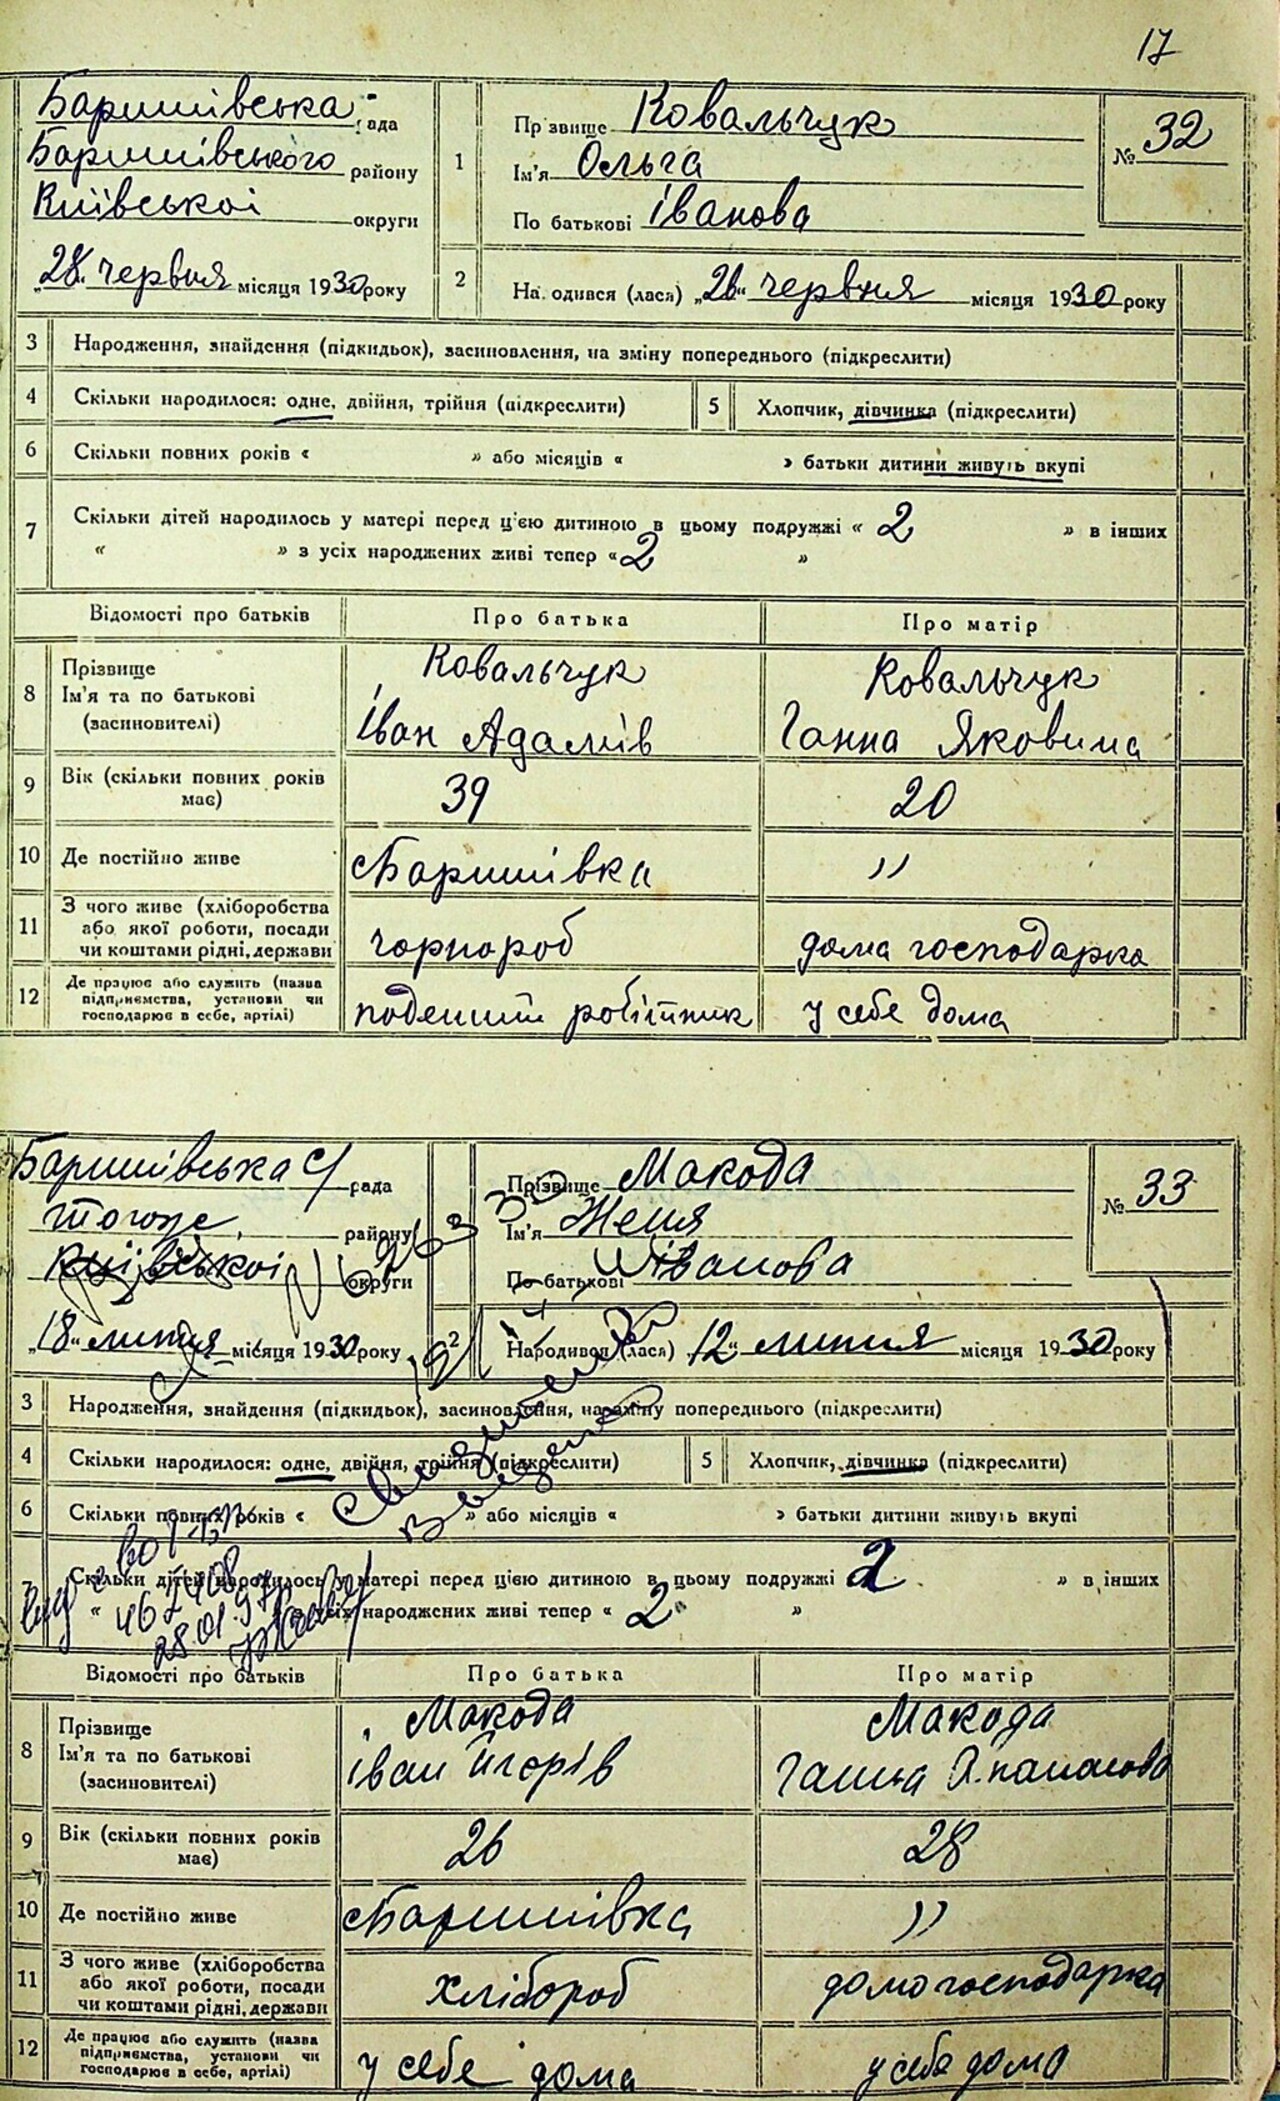 17
Баришівська рада
Баришівського району
Київської округи
„28“ червня місяця 1930 року
1
Прізвище Ковальчук
Ім'я Ольга
По батькові Іванова
№ 32
2
На одився (лася) „26“ червня місяця 1930 року
3 Народження, знайдення (підкидьок), засиновлення, на зміну попереднього (підкреслити)
4 Скільки народилося: одне, двійня, трійня (підкреслити)
5 Хлопчик, дівчинка (підкреслити)
6 Скільки повних років « » або місяців « » батьки дитини живуть вкупі
7 Скільки дітей народилось у матері перед цією дитиною в цьому подружжі « 2 » в інших
« » з усіх народжених живі тепер « 2 »
Відомості про батьків Про батька Про матір
8 Прізвище
Ім'я та по батькові
(засиновителі)
Ковальчук
Іван Адамів
Ковальчук
Ганна Яковина
9 Вік (скільки повних років
має)
39 20
10 Де постійно живе Баришівка "
11 З чого живе (хліборобства
або якої роботи, посади
чи коштами рідні, держави
чорнороб дома господарка
12 Де працює або служить (назва
підприємства, установи чи
господарює в себе, артілі)
поденний робітник у себе дома
Баришівська с/рада
тогож району
Київської округи
„18“ липня місяця 1930 року
Прізвище Макода
Ім'я Женя
По батькові Іванова
№ 33
2
Народився (лася) „12“ липня місяця 1930 року
3 Народження, знайдення (підкидьок), засиновлення, на зміну попереднього (підкреслити)
4 Скільки народилося: одне, двійня, трійня (підкреслити)
5 Хлопчик, дівчинка (підкреслити)
6 Скільки повних років « » або місяців « » батьки дитини живуть вкупі
Скільки дітей народилось у матері перед цією дитиною в цьому подружжі 2 » в інших
« усіх народжених живі тепер « 2 »
462408
28.01.97
Відомості про батьків Про батька Про матір
8 Прізвище
Ім'я та по батькові
(засиновителі)
Макода
Іван Ігорів
Макода
Ганна Апанасова
9 Вік (скільки повних років
має)
26 28
10 Де постійно живе Баришівка "
11 З чого живе (хліборобства
або якої роботи, посади
чи коштами рідні, держави
Хлібороб домогосподарка
12 Де працює або служить (назва
підприємства, установи чи
господарює в себе, артілі)
у себе дома у себе дома